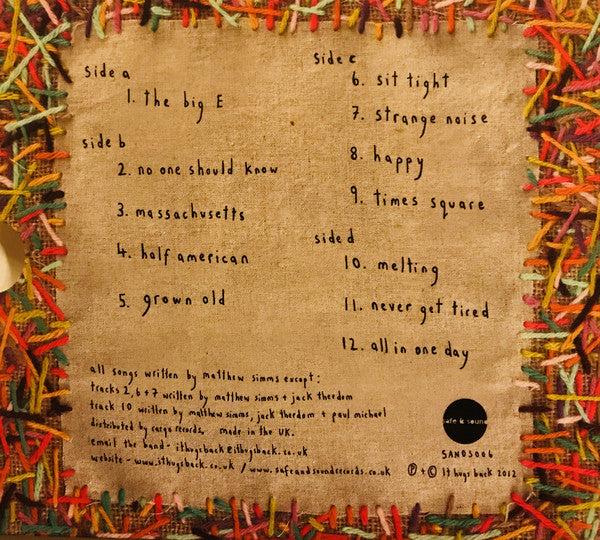 side a
1. the big E
side b
2. no one should know
3. massachusetts
4. half american
5. grown old
side c
6. sit tight
7. strange noise
8. happy
9. times square
side d
10. melting
11. never get tired
12. all in one day
all songs written by matthew simms except:
tracks 2, 6 + 7 written by matthew simms + jack theedom
track 10 written by matthew simms, jack theedom + paul michael
distributed by cargo records. made in the UK.
email the band - ithugsback@ithugsback.co.uk
website - www.ithugsback.co.uk / www.safeandsoundrecords.co.uk
safe & sound
SANDS006
℗ + © It hugs back 2012